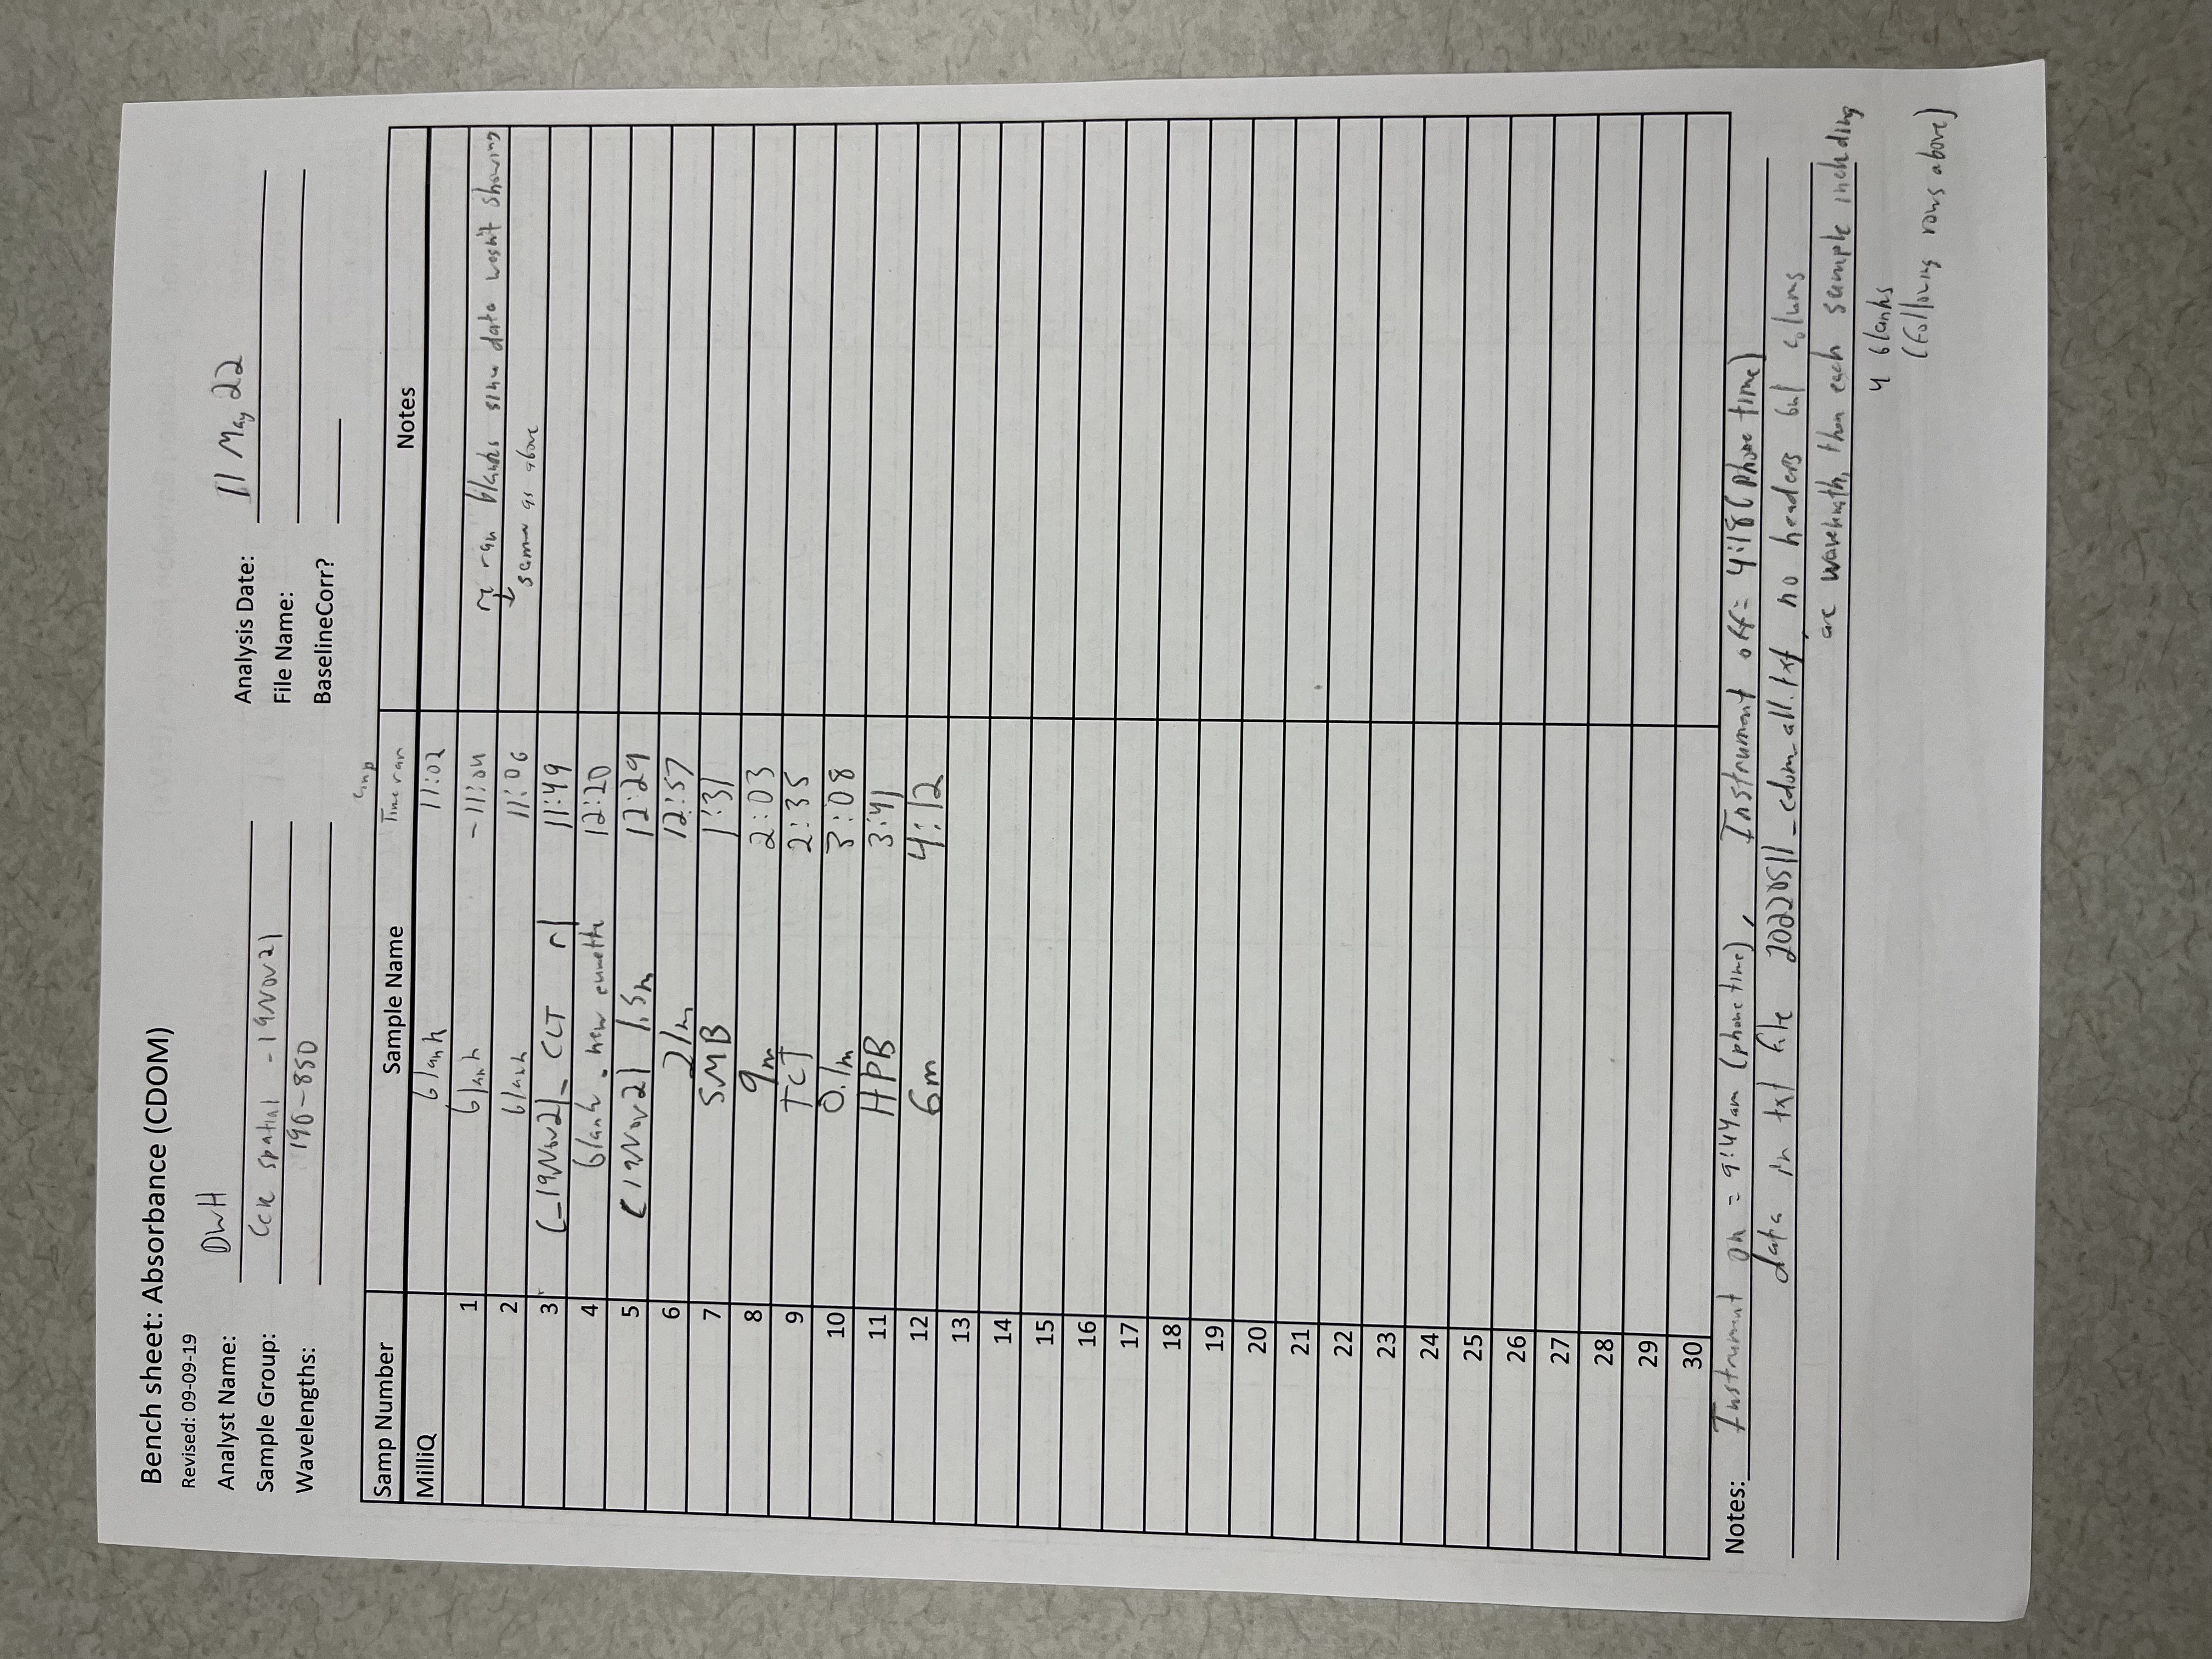 Bench sheet: Absorbance (CDOM)
Revised: 09-09-19
Analyst Name: DWH
Analysis Date: 11 May 22
Sample Group: CCR spatial - 19Nov21
File Name:
Wavelengths: 190-850
BaselineCorr?
Samp Number Sample Name Time ran Notes
MilliQ blank 11:02
1 blank - 11:04 re ran blanks since data wasn't showing
2 blank 11:06 same as above
3 C_19Nov21_ CCT r1 11:49
4 blank - new cuvette 12:20
5 C 19Nov21 1.5m 12:29
6 21m 12:57
7 SMB 1:31
8 9m 2:03
9 TCT 2:35
10 0.1m 3:08
11 HPB 3:41
12 6m 4:12
13
14
15
16
17
18
19
20
21
22
23
24
25
26
27
28
29
30
Notes: Instrument on = 9:44am (phone time), Instrument off= 4:18 (phone time)
data in txt file 20220511_cdom_all.txt, no headers but colums
are wavelength, then each sample including
4 blanks
(following rows above)